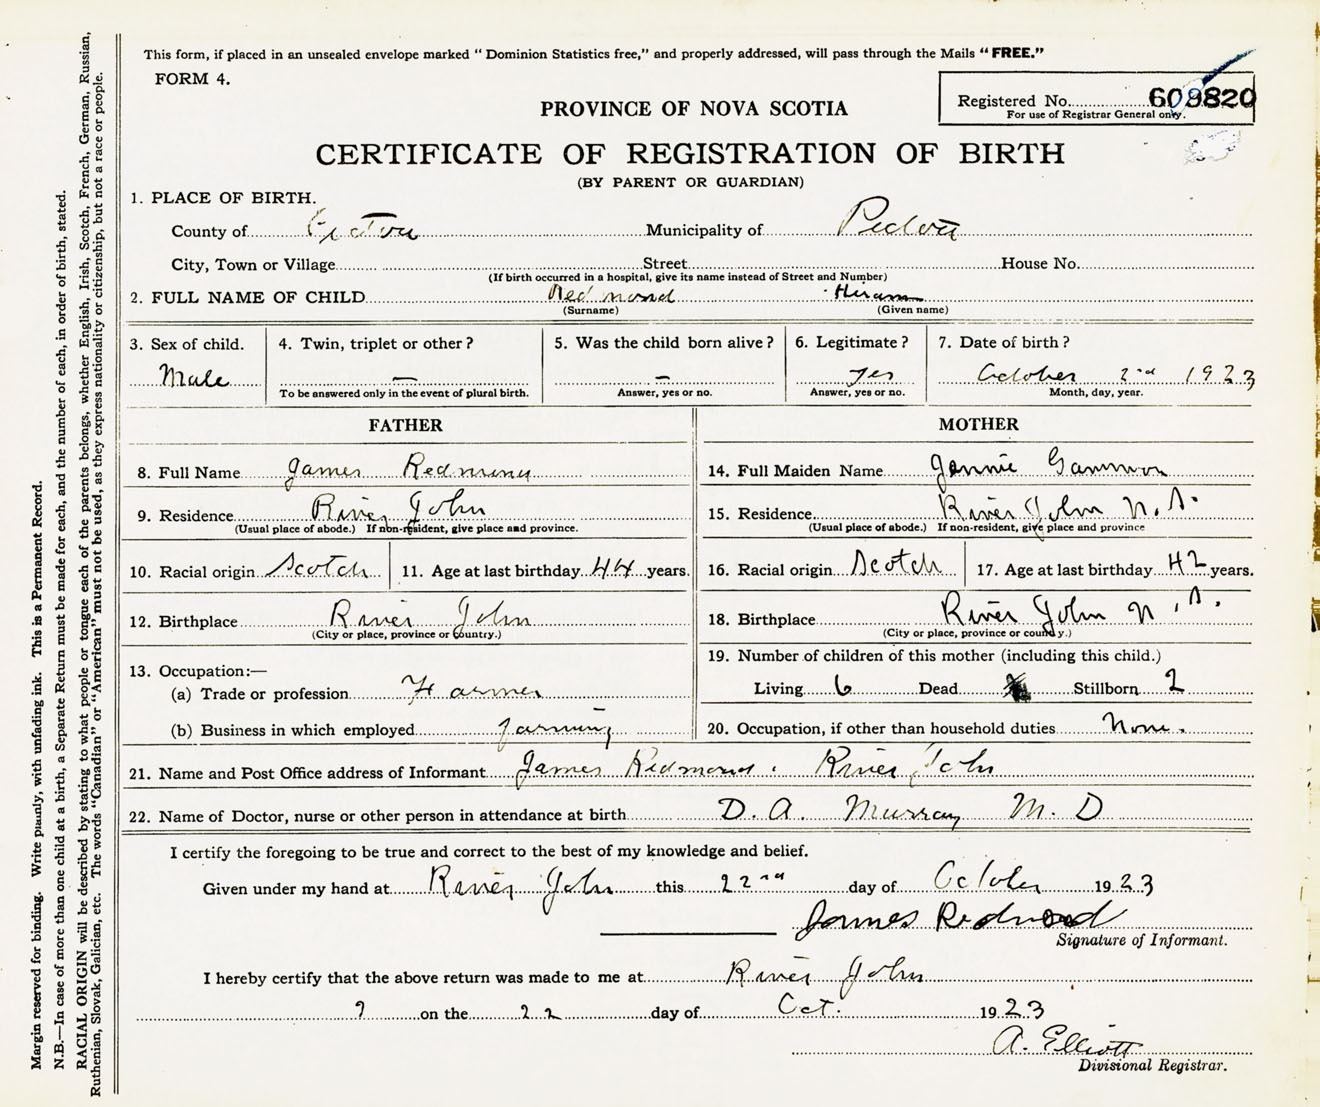 This form, if placed in an unsealed envelope marked " Dominion Statistics free," and properly addressed, will pass through the Mails "FREE."
FORM 4.
Registered No. 609820
For use of Registrar General only.
PROVINCE OF NOVA SCOTIA
CERTIFICATE OF REGISTRATION OF BIRTH
(BY PARENT OR GUARDIAN)
1. PLACE OF BIRTH.
County of Pictou Municipality of Pictou
City, Town or Village Street House No.
(If birth occurred in a hospital, give its name instead of Street and Number)
2. FULL NAME OF CHILD Redmond Hiram
(Surname) (Given name)
3. Sex of child. 4. Twin, triplet or other? 5. Was the child born alive? 6. Legitimate? 7. Date of birth?
Male — — yes October 2nd 1923
To be answered only in the event of plural birth. Answer, yes or no. Answer, yes or no. Month, day, year.
FATHER MOTHER
8. Full Name James Redmond 14. Full Maiden Name Jennie Gammon
9. Residence River John 15. Residence River John N.S.
(Usual place of abode.) If non-resident, give place and province. (Usual place of abode.) If non-resident, give place and province
10. Racial origin Scotch 11. Age at last birthday 44 years. 16. Racial origin Scotch 17. Age at last birthday 42 years.
12. Birthplace River John 18. Birthplace River John N.S.
(City or place, province or country.) (City or place, province or county.)
13. Occupation:— 19. Number of children of this mother (including this child.)
(a) Trade or profession Farmer Living 6 Dead Stillborn 2
(b) Business in which employed farming 20. Occupation, if other than household duties None.
21. Name and Post Office address of Informant James Redmond. River John
22. Name of Doctor, nurse or other person in attendance at birth D. A. Murray M. D
I certify the foregoing to be true and correct to the best of my knowledge and belief.
Given under my hand at River John this 22nd day of October 1923
James Redmond
Signature of Informant.
I hereby certify that the above return was made to me at River John
on the 22 day of Oct. 1923
A. Elliott
Divisional Registrar.
Margin reserved for binding. Write plainly, with unfading ink. This is a Permanent Record.
N.B.—In case of more than one child at a birth, a Separate Return must be made for each, and the number of each, in order of birth, stated.
RACIAL ORIGIN will be described by stating to what people or tongue each of the parents belongs, whether English, Irish, Scotch, French, German, Russian,
Ruthenian, Slovak, Galician, etc. The words "Canadian" or "American" must not be used, as they express nationality or citizenship, but not a race or people.